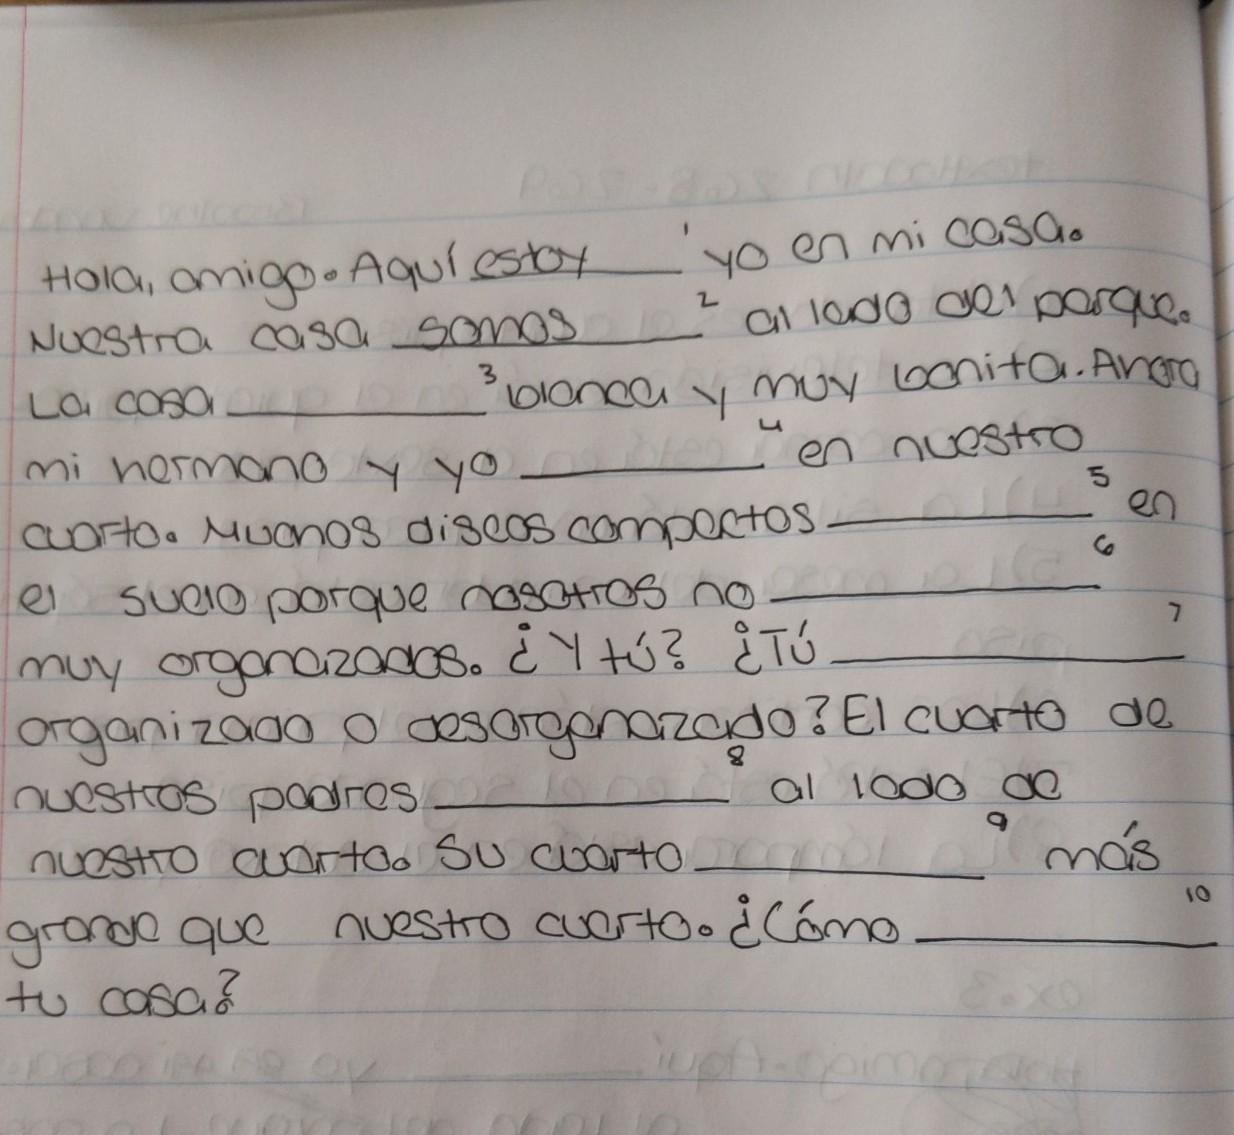 Hola, amigo. Aquí estoy ___ 1 yo en mi casa.
Nuestra casa somos ___ 2 al lado del parque.
La casa ___ 3 blanca y muy bonita. Ahora
mi hermano y yo ___ 4 en nuestro
cuarto. Muchos discos compactos ___ 5 en
el suelo porque nosotros no ___ 6
muy organazados. ¿Y tú? ¿Tú ___ 7
organizado o desorganazado? El cuarto de
nuestros padres ___ 8 al lado de
nuestro cuarto. Su cuarto ___ 9 más
grande que nuestro cuarto. ¿Cómo ___ 10
tu casa?